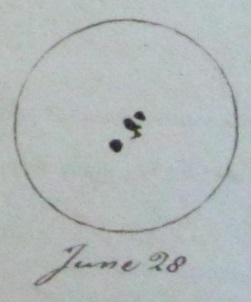 June 28